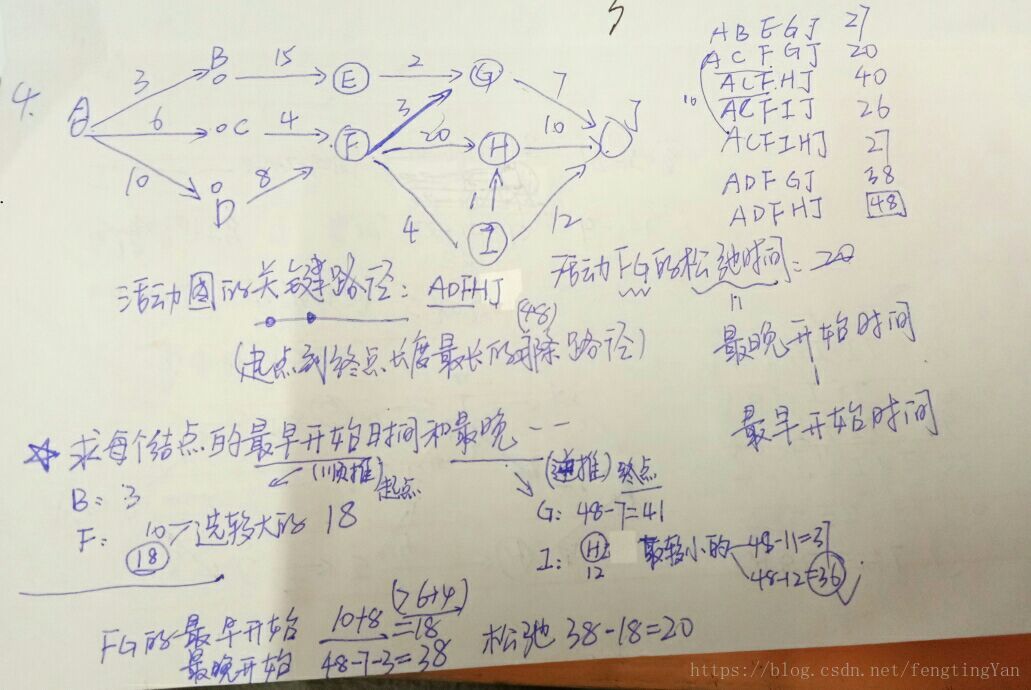 4.
A
3
B
15
E
2
G
7
J
6
C
4
F
3
20
H
10
10
D
8
4
I
1
12
ABEGJ 27
ACFGJ 20
ACFHJ 40
ACFIJ 26
10
ACFIHJ 27
ADFGJ 38
ADFHJ 48
活动图的关键路径: ADFHJ
(48)
(起点到终点长度最长的 路径)
活动FG的松弛时间: 20
最晚开始时间
最早开始时间
☆求每个结点的最早开始时间和最晚--
(顺推) 起点
(逆推) 终点
B: 3
F: 10 选较大的 18
18
G: 48-7=41
I: H 最较小的 48-11=37
12 48-12=36
FG的最早开始 10+8 =18 (>6+4)
最晚开始 48-7-3=38
松弛 38-18=20
https://blog.csdn.net/fengtingYan